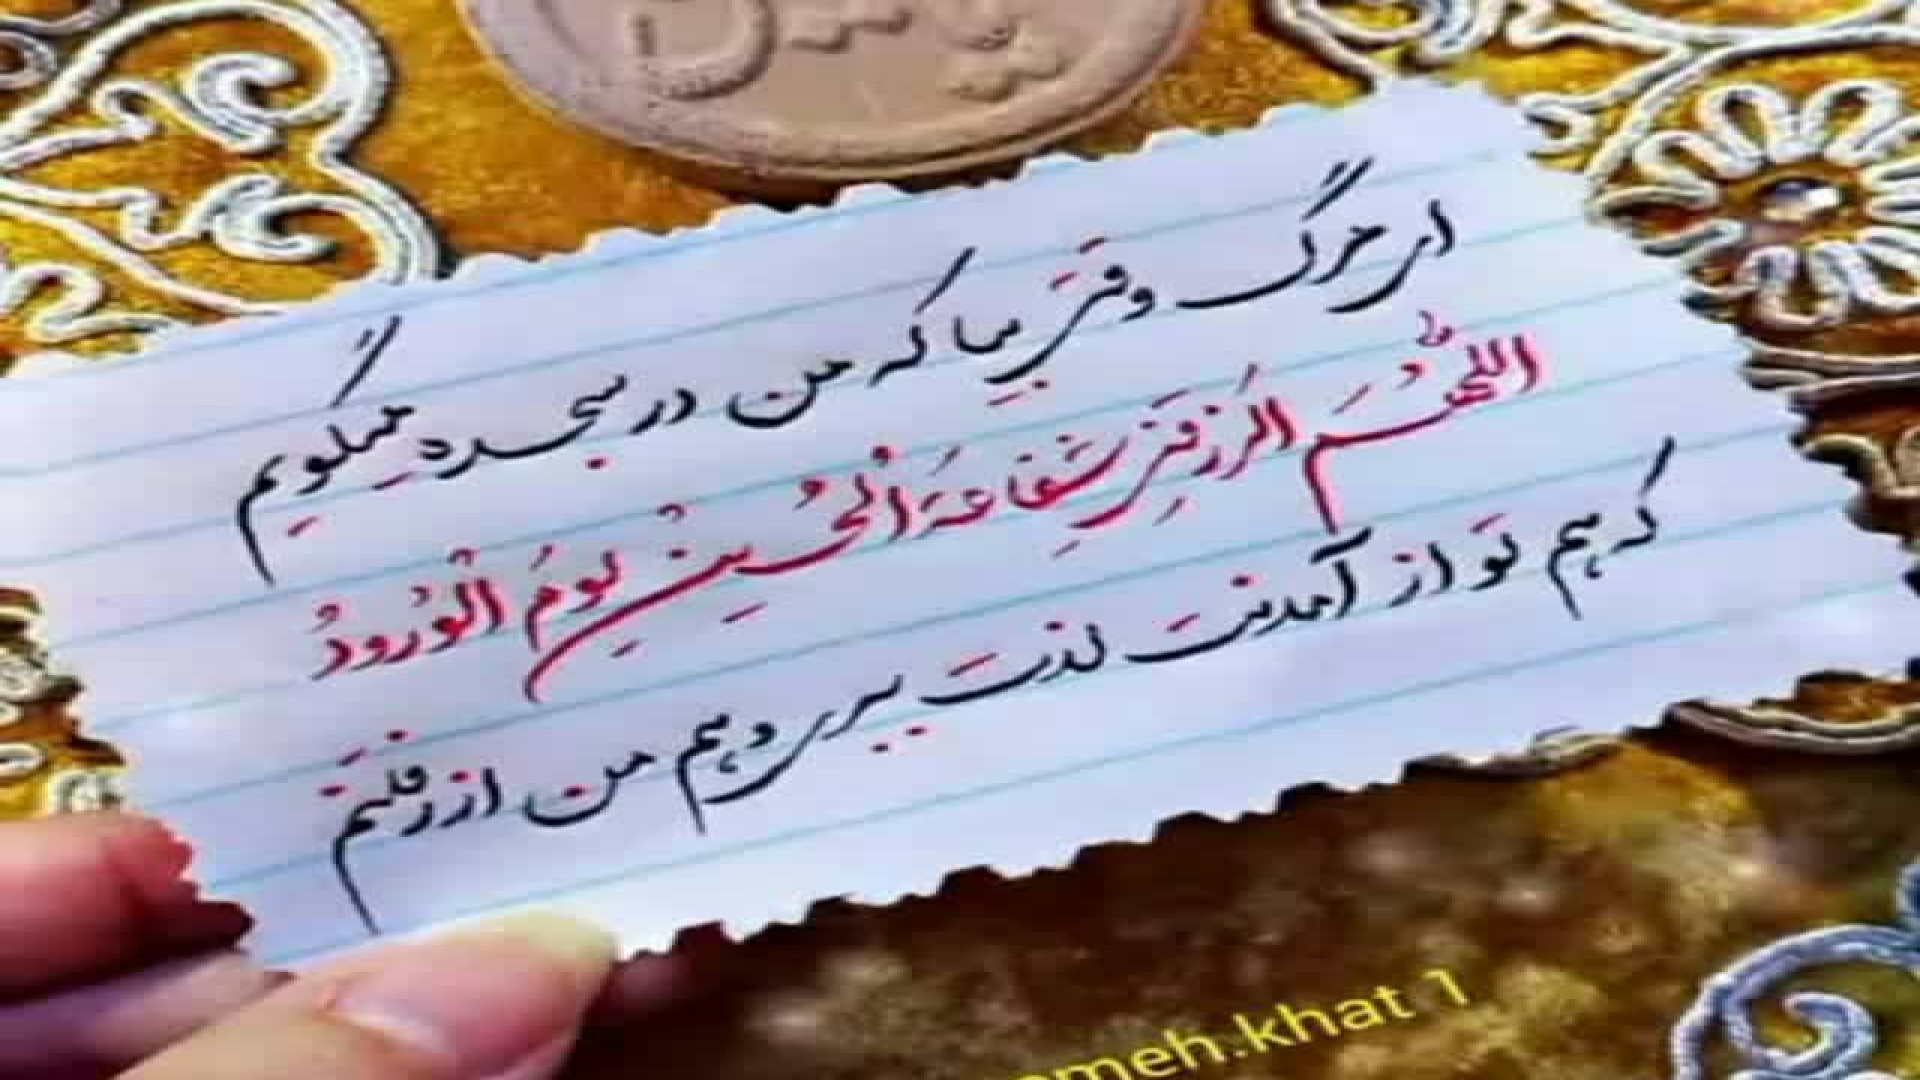 ای مرگ وقتی بیا که من در سجده میگویم
اللهُمَ الرزقنی شَفاعَةَ الْحُسین یَومَ الْوُرودُ
که هم تو از آمدنت لذت ببری و هم من از رفتنم
omeh.khat 1